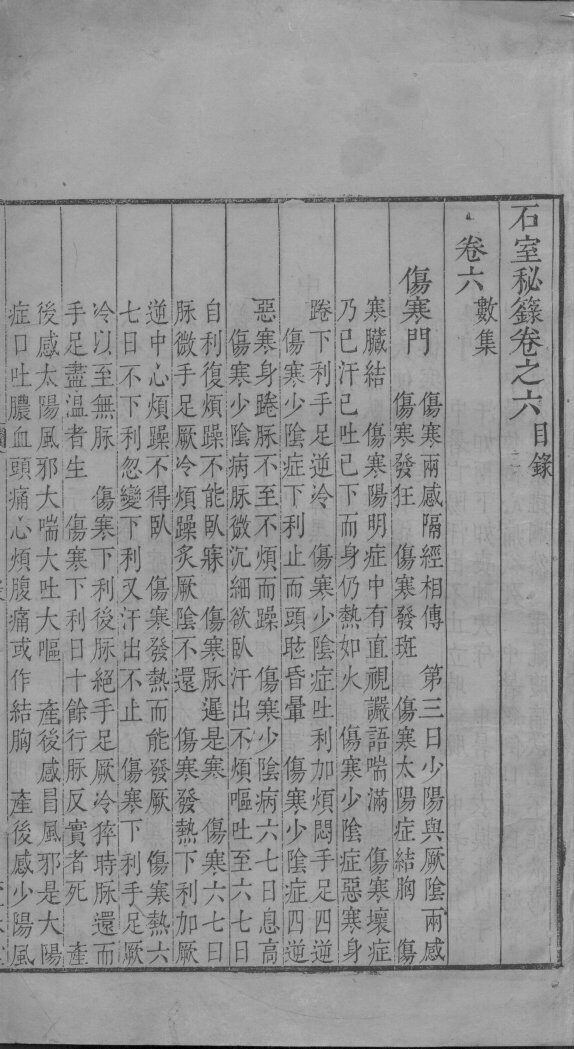 石室秘籙卷之六目錄
卷六 數集
傷寒門
傷寒兩感隔經相傳 第三日少陽與厥陰兩感
傷寒發狂 傷寒發斑 傷寒太陽症結胸 傷
寒臟結 傷寒陽明症中有直視讝語喘滿 傷寒壞症
乃已汗已吐已下而身仍熱如火 傷寒少陰症惡寒身
踡下利手足逆冷 傷寒少陰症吐利加煩悶手足四逆
傷寒少陰症下利止而頭眩昏暈 傷寒少陰症四逆
惡寒身踡脉不至不煩而躁 傷寒少陰病六七日息高
傷寒少陰病脉微沉細欲臥汗出不煩嘔吐至六七日
自利復煩躁不能臥寐 傷寒脉遲是寒 傷寒六七日
脉微手足厥冷煩躁炙厥陰不還 傷寒發熱下利加厥
逆中心煩躁不得臥 傷寒發熱而能發厥 傷寒熱六
七日不下利忽變下利又汗出不止 傷寒下利手足厥
冷以至無脉 傷寒下利後脉絕手足厥冷猝時脉還而
手足盡溫者生 傷寒下利日十餘行脉反實者死 產
後感太陽風邪大喘大吐大嘔 產後感冒風邪是太陽
症口吐膿血頭痛心煩腹痛或作結胸 產後感少陽風